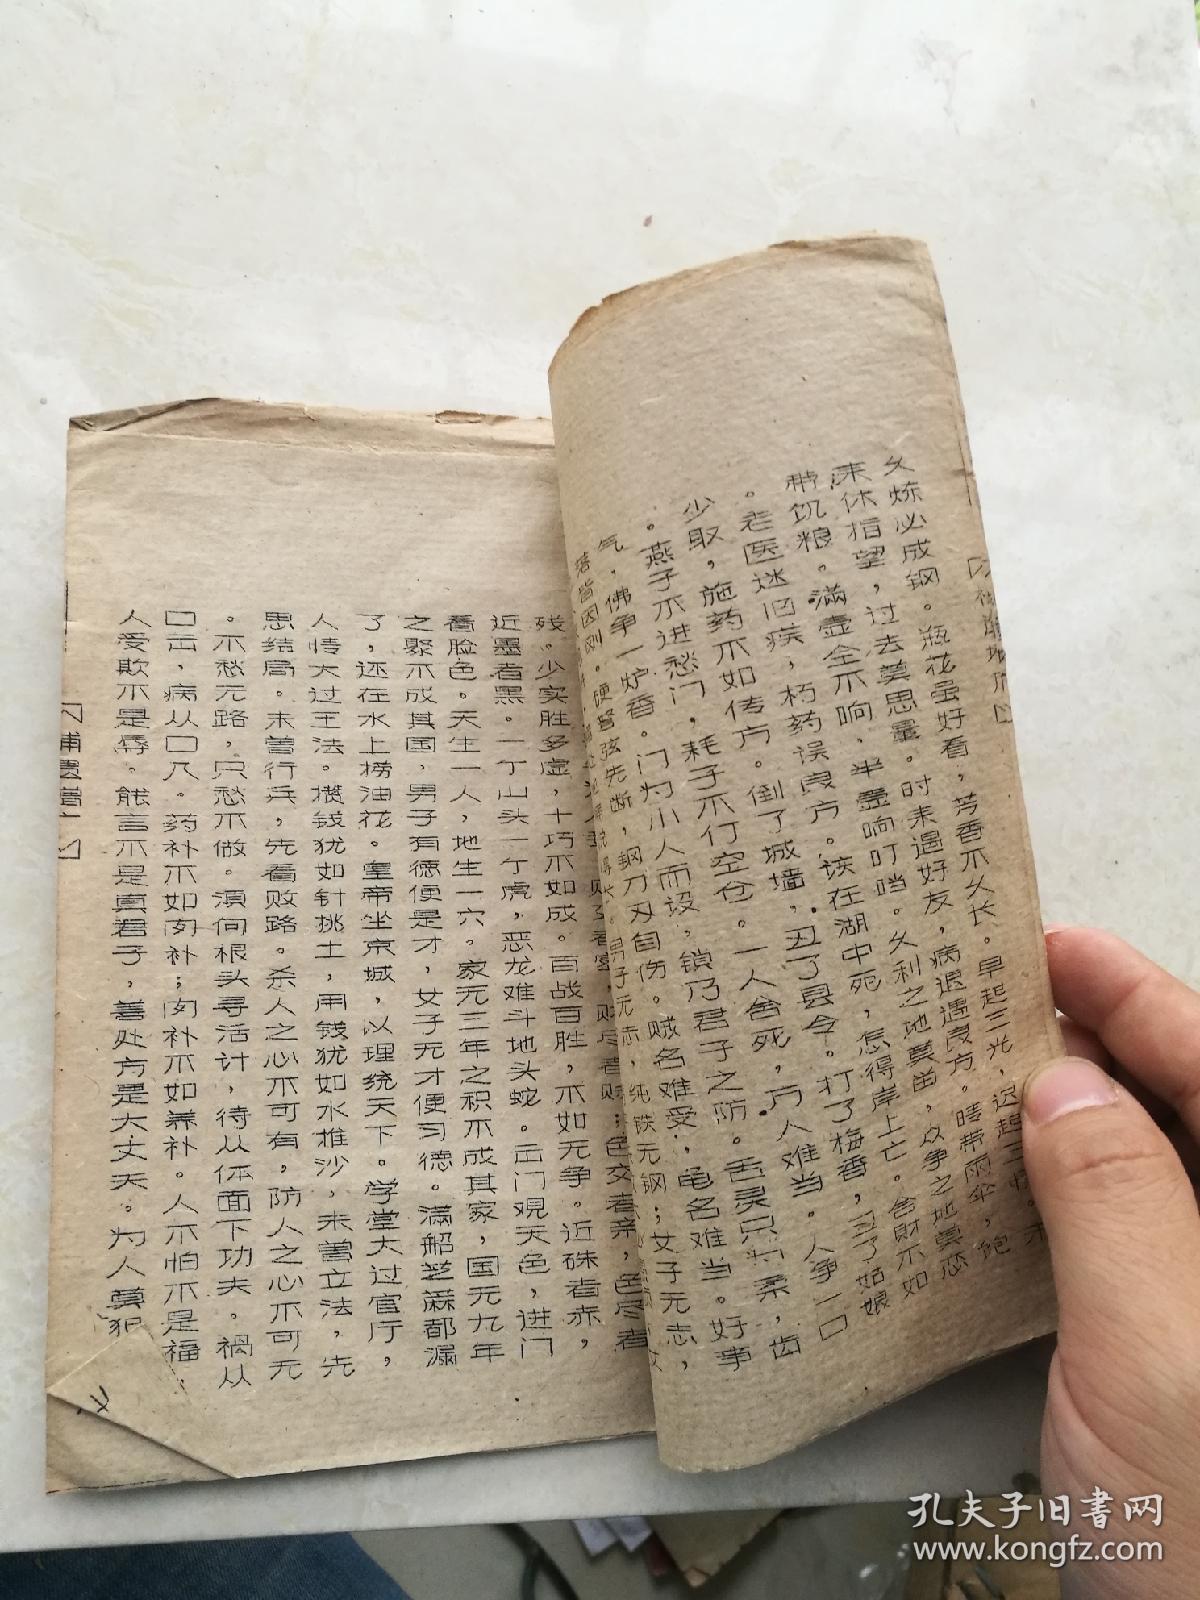 久炼必成钢。瓶花虽好看，芳香不久长。早起三光，迟起三忙。未
来休指望，过去莫思量。时来遇好友，病退遇良方。晴带雨伞，饱
带饥粮。满壶全不响，半壶响叮当。久利之地莫苗，众争之地莫恋
。老医迷旧疾，朽药误良方。该在湖中死，怎得岸上亡。舍财不如
少取，施药不如传方。倒了城墙，丑了县令。打了梅香，丑了姑娘
。燕子不进愁门，耗子不行空仓。一人舍死，万人难当。人争一口
气，佛争一炉香。门为小人而设，锁乃君子之防。舌灵只为柔，齿
落皆因刚。硬弩弦先断，钢刀刃自伤。贼名难受，龟名难当。好事
男子无志，纯铁无钢；女子无志，
败尽者财；色交者亲，色尽者
残。少实胜多虚，十巧不如成。百战百胜，不如无争。近硃者赤，
近墨者黑。一个山头一个虎，恶龙难斗地头蛇。出门观天色，进门
看脸色。天生一人，地生一穴。家无三年之积不成其家，国无九年
之聚不成其国，男子有德便是才，女子无才便习德。满船芝蔴都漏
了，还在水上捞油花。皇帝坐京城，以理统天下。学堂大过官厅，
人情大过王法。攒钱犹如针挑土，用钱犹如水推沙，未曾立法，先
思结局。未曾行兵，先看败路。杀人之心不可有，防人之心不可无
。不愁无路，只愁不做。须向根头寻活计，待从体面下功夫。祸从
口出，病从口入。药补不如肉补；肉补不如养补。人不怕不是福，
人受欺不是辱。能言不是真君子，善处方是大丈夫。为人莫犯
孔夫子旧书网
www.kongfz.com